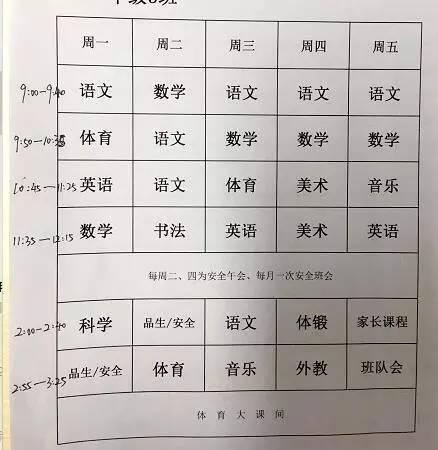 周一 周二 周三 周四 周五
9:00-9:40 语文 数学 语文 语文 语文
9:50-10:35 体育 语文 数学 数学 数学
10:45-11:25 英语 语文 体育 美术 音乐
11:35-12:15 数学 书法 英语 美术 英语
每周二、四为安全午会、每月一次安全班会
2:00-2:40 科学 品生/安全 语文 体锻 家长课程
2:55-3:25 品生/安全 体育 音乐 外教 班队会
体育大课间